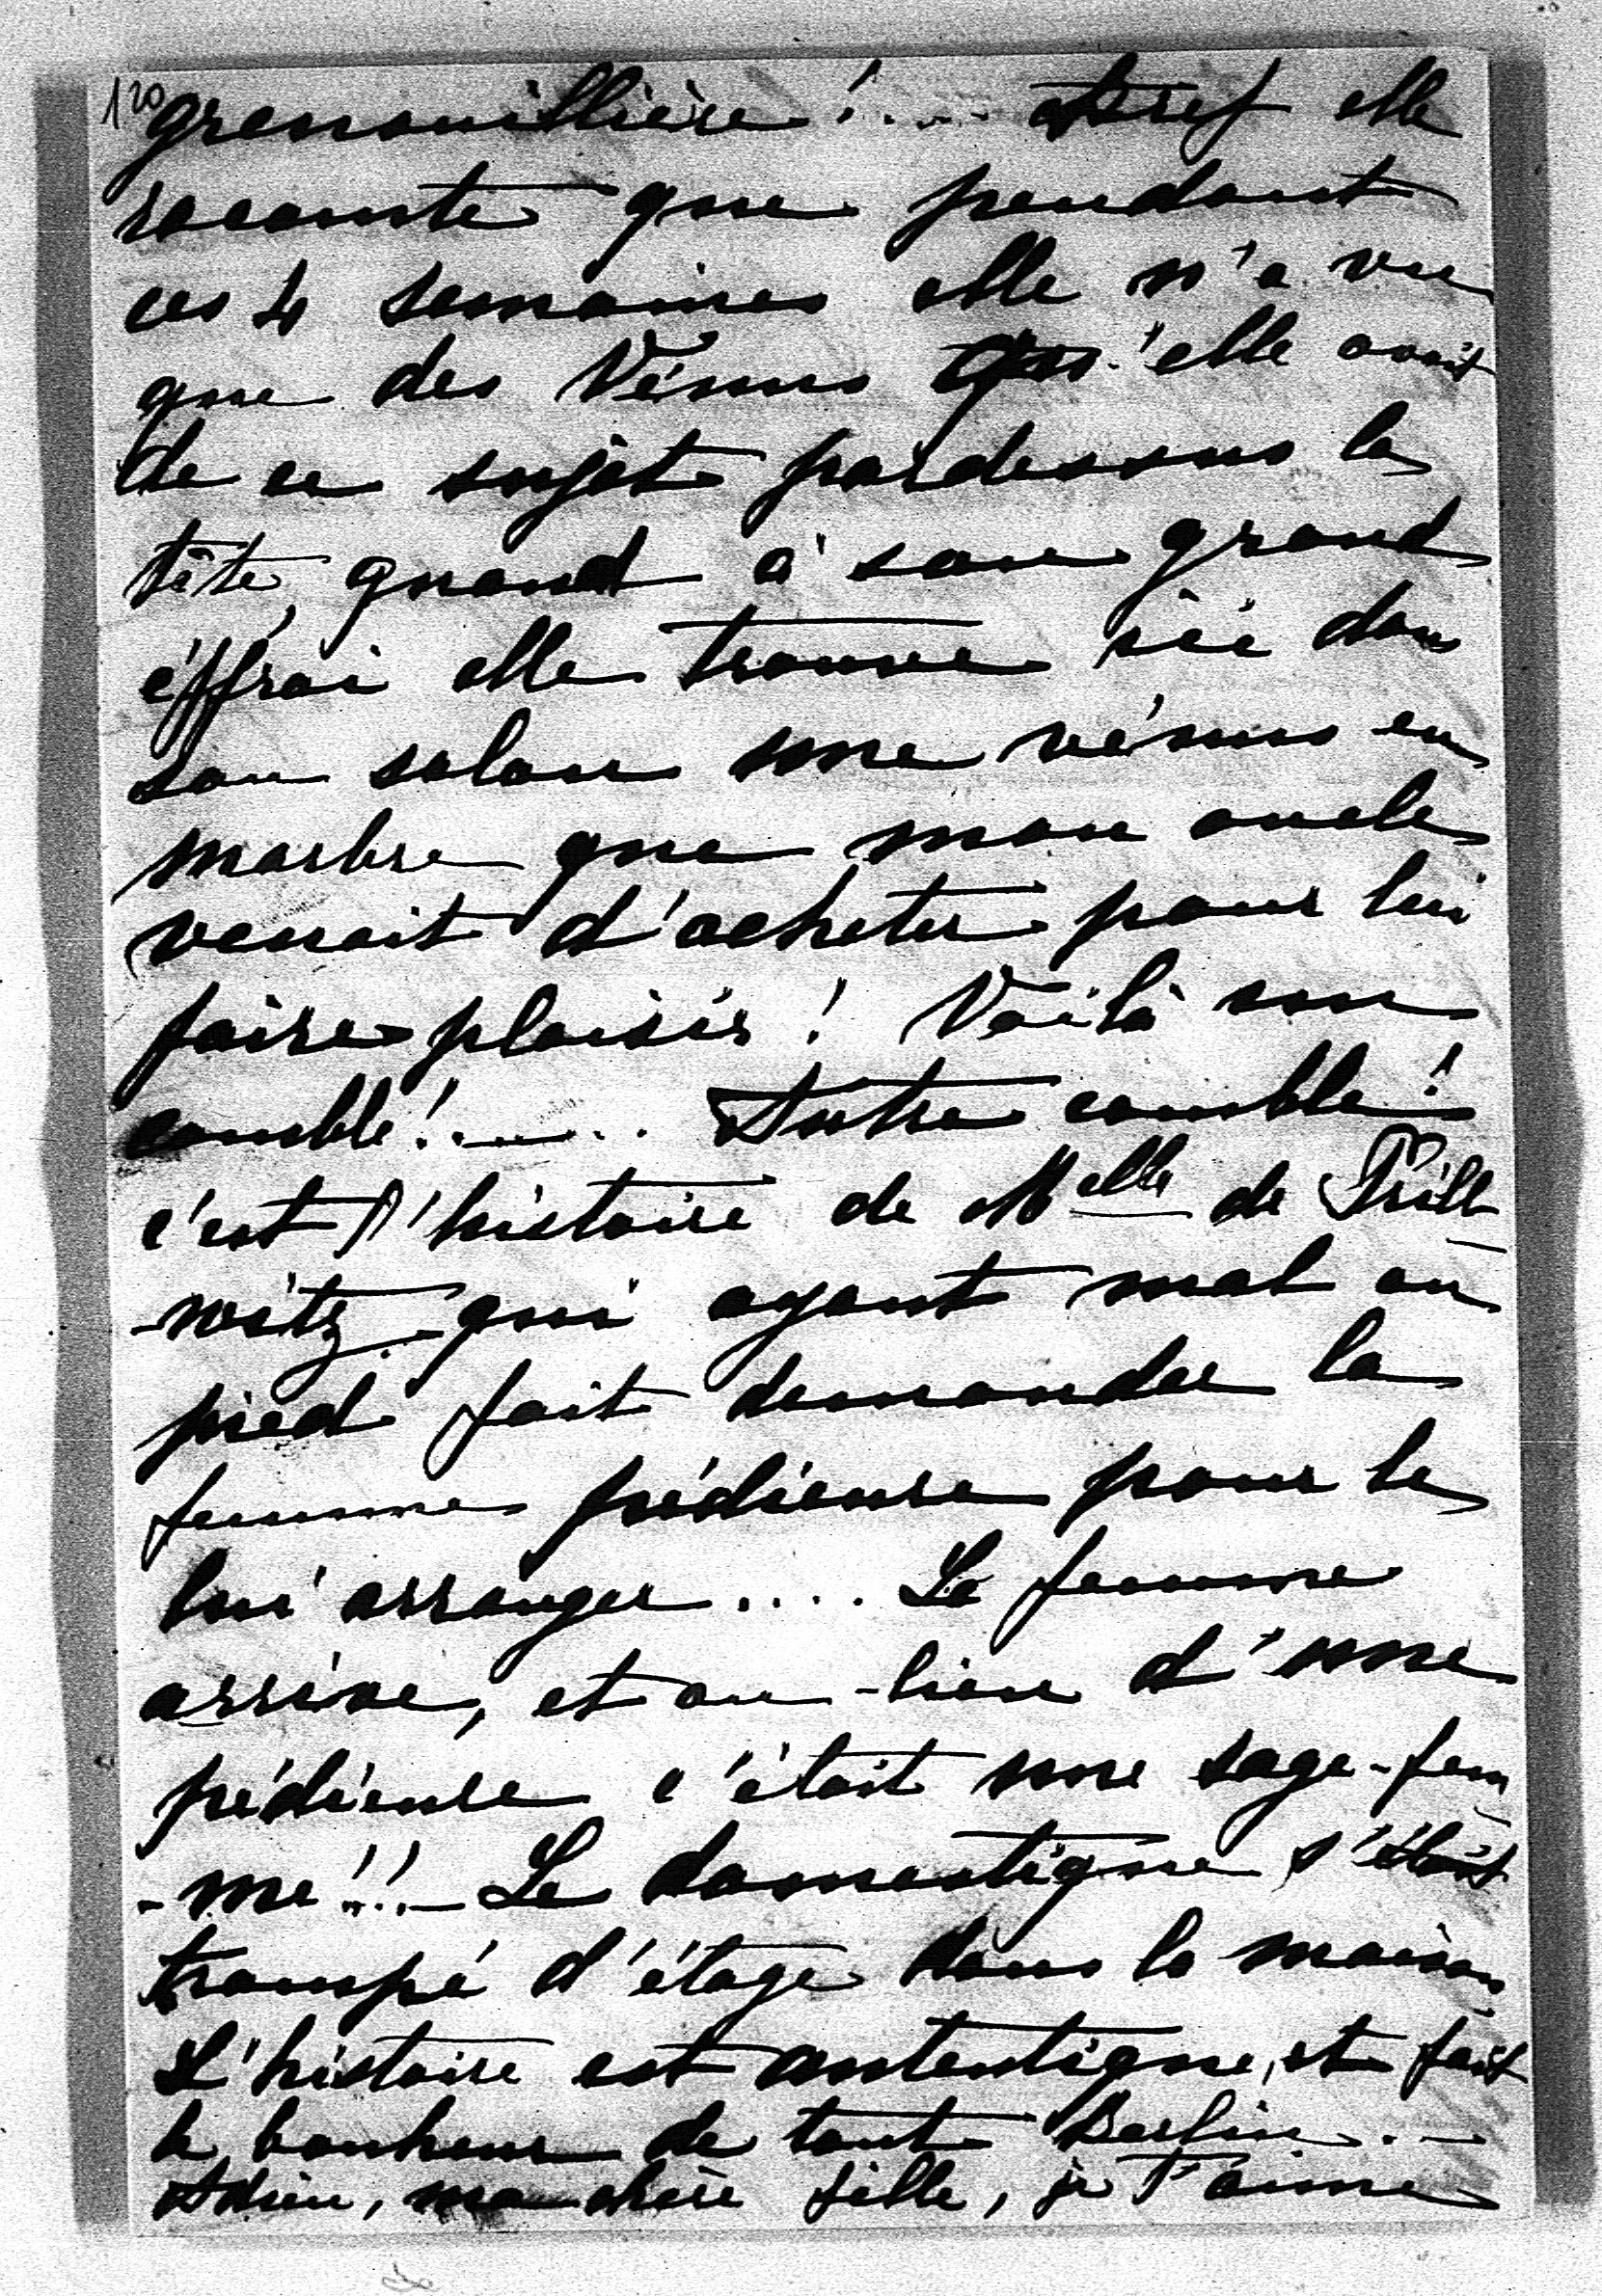 120
grenouillière!.... Bref elle
raconte que pendant
ces 4 semaines elle n'a vu
que des Vénus qu'elle avait
de ce sujet pardessus la
tête, quand à son grand
éffroi elle trouve ici dans
son salon une vénus en
marbre que mon oncle
venait d'acheter pour lui
faire plaisir! Voilà un
comble!...... Autre comble!
c'est l'histoire de Melle de Prill-
-witz qui ayant mal au
pied fait demander la
femme pédieure pour le
lui arranger.... La femme
arrive, et au-lieu d'une
pédieure c'était une sage-fem
-me!!! Le domestique s'était
trompé d'étage dans la maison
L'histoire est autentique, et fait
le bonheur de tout Berlin.-
Adieu, ma chère fille, je t'aime